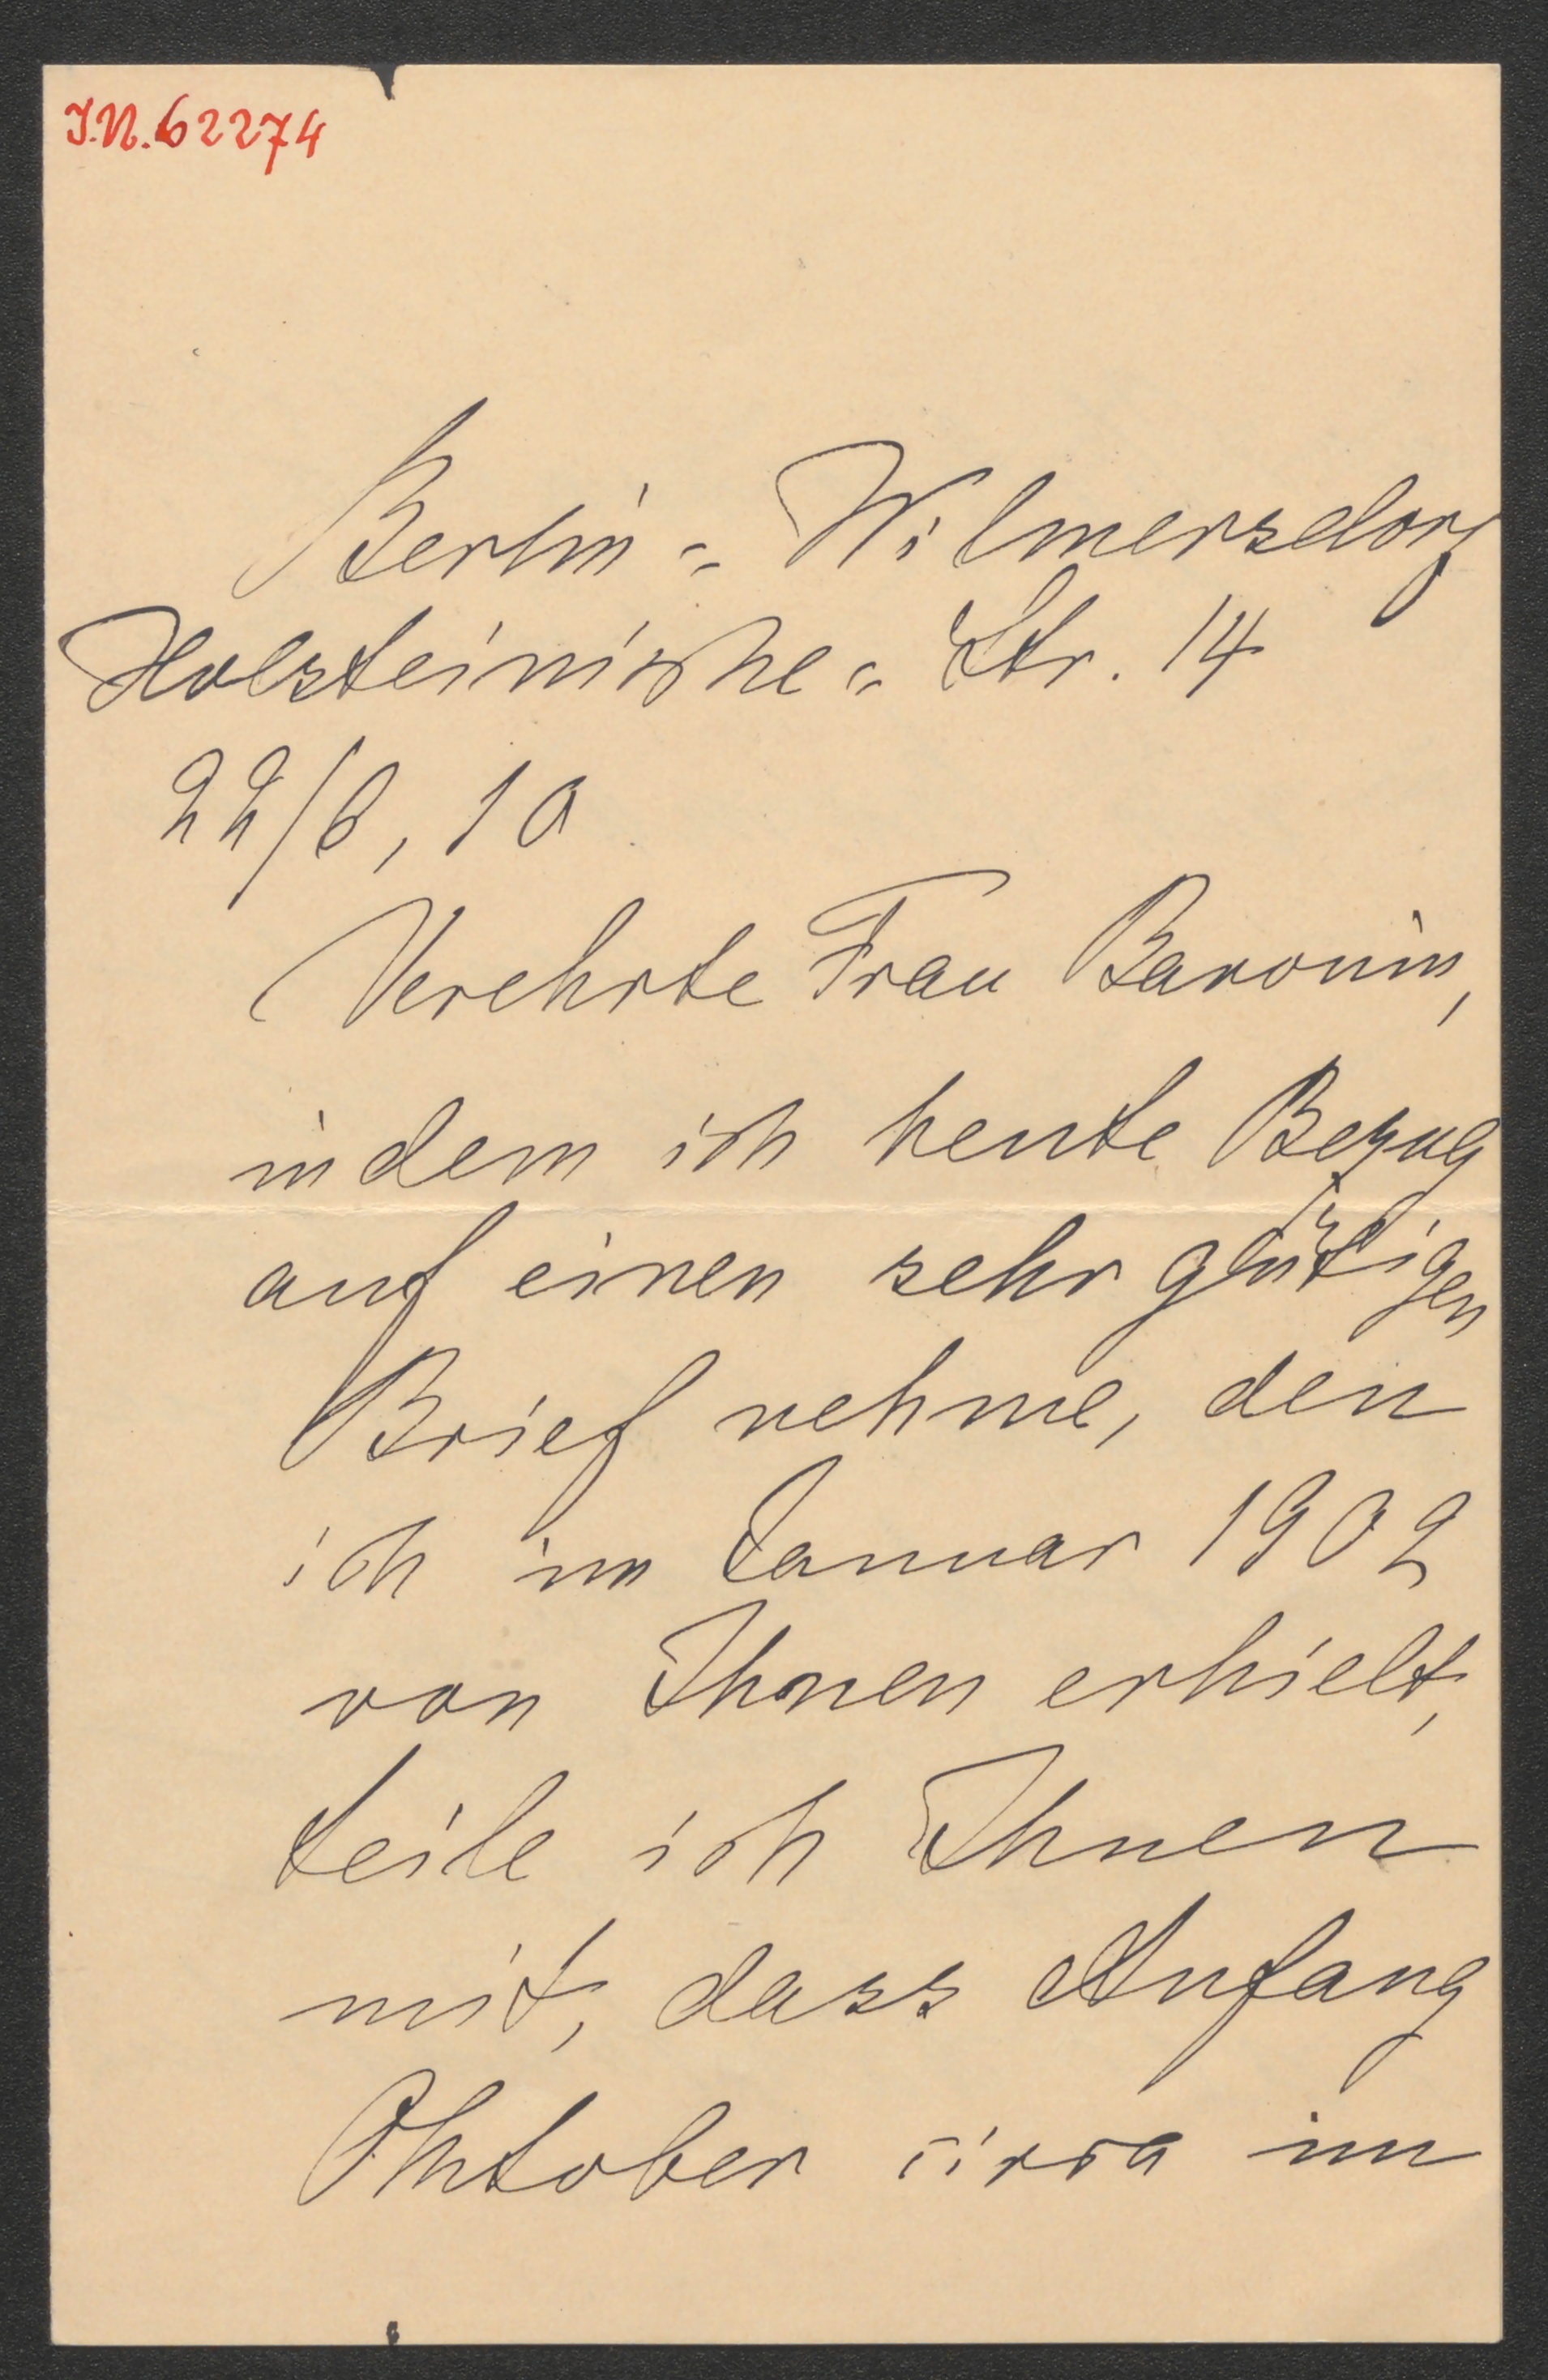 J.N. 62274
Berlin = Wilmersdorf
Holsteinische = Str. 14
22/6, 10
Verehrte Frau Baronin,
indem ich heute Bezug
auf einen sehr gütigen
Brief nehme, den
ich im Januar 1902
von Ihnen erhielt,
teile ich Ihnen
mit, dass Anfang
Oktober circa im